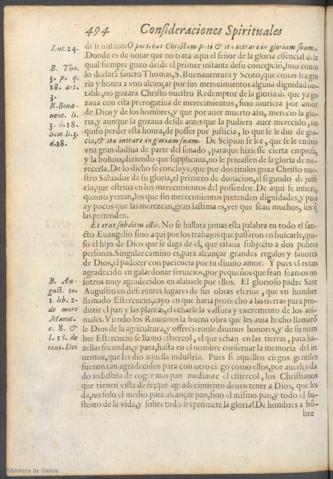 494 Consideraciones Spirituales
Luc. 24.
de si mismo: Oportebat Christum pati & ita intrare in gloriam suam.
Donde es de notar que no trata aqui el señor de la gloria essencial de la
qual siempre gozò desde el primer instante de su concepcion, sino como
B. Tho. 3. p. q. 18. art. 3.
lo declara sancto Thomas, S. Buenauentura y Scoto, que como sea glo
ria y honra a vno alcançar por sus merecimientos alguna dignidad no
table, no gozara Christo nuestro Redemptor de la gloria de que ya go
B. Bona-
zaua con esta prerrogatiua de merecimientos, sino muriera por amor
de Dios y de los hombres, y que por auer muerto assi, mereció la glo
ria, y aunque la gozaua desde antes que la pudiera auer merecido, no
quiso perder esta honra, de posser por justicia, lo que se le dio de gra-
cia, & ita intrare in gloriam suam. De Scipion se lee, que se le embio
vna gran dadiua de parte del senado, para que hiziesse cierta empresa,
y la boluio, diziendo que supplicaua, no le priuassen de la gloria de
merecerla. De lo dicho se concluye, que por dos titulos goza Christo nue
stro Saluador de su gloria, el primero de donacion, el segundo de justi
cia, que estriua en los merecimientos del possedor. De aqui se infiere,
quanto yerran, los que sin merecimientos pretenden dignidades, y pues
ay pocos que las merezcan, gran lastima es, ver que sean muchos, los q̃
las pretenden.
Et erat subditus illis. No se hallara jamas esta palabra en todo el san-
cto Euangelio sino aqui por los trabajos que passaron en buscarle, qui-
so el hijo de Dios que se diga de el, que estaua subjecto a dos pobres
personas. Singular camino es, para alcançar grandes regalos y fauores
de Dios, el padecer con paciencia por su diuino amor. Y pues el es tan
agradecido en galardonar seruicios, por pequeños que sean seamos no
sotros muy agradecidos en alabarle por ellos. El glorioso padre Sant
Augustin en differentes lugares de sus obras escriue, que vn hombre
llamado Estercucio, cayo en que haria prouecho a las tierras para pro-
duzir el pan y las plantas, el echarle la vassura y excremento de los ani-
males. Viendo los Romanos la buena obra que les auia hecho llamarõ
le Dios de la agricultura, y offrecieronle diuinos honores, y de su nom
bre Estercucio se llamo estiercol, el que echan en las tierras, para ha-
zellas fecundas, y para, hasta en el nombre conseruar la memoria del in
uentor, que les dio aquella industria. Pues si aquellos ciegos gentiles
fueron tan agradecidos para con otro ciego como ellos, por auerles da
do industria de coger mas pan mediante el estiercol, los Christianos
que tienen vista de fe, que agradecimiento deuen tener a Dios, que les
da, no solo el medio para alcançar pan, sino el mismo pan, y todo el su-
stento de la vida, y sobre todo les promete la gloria? De hombres a hõ
bre
Biblioteca de Galicia